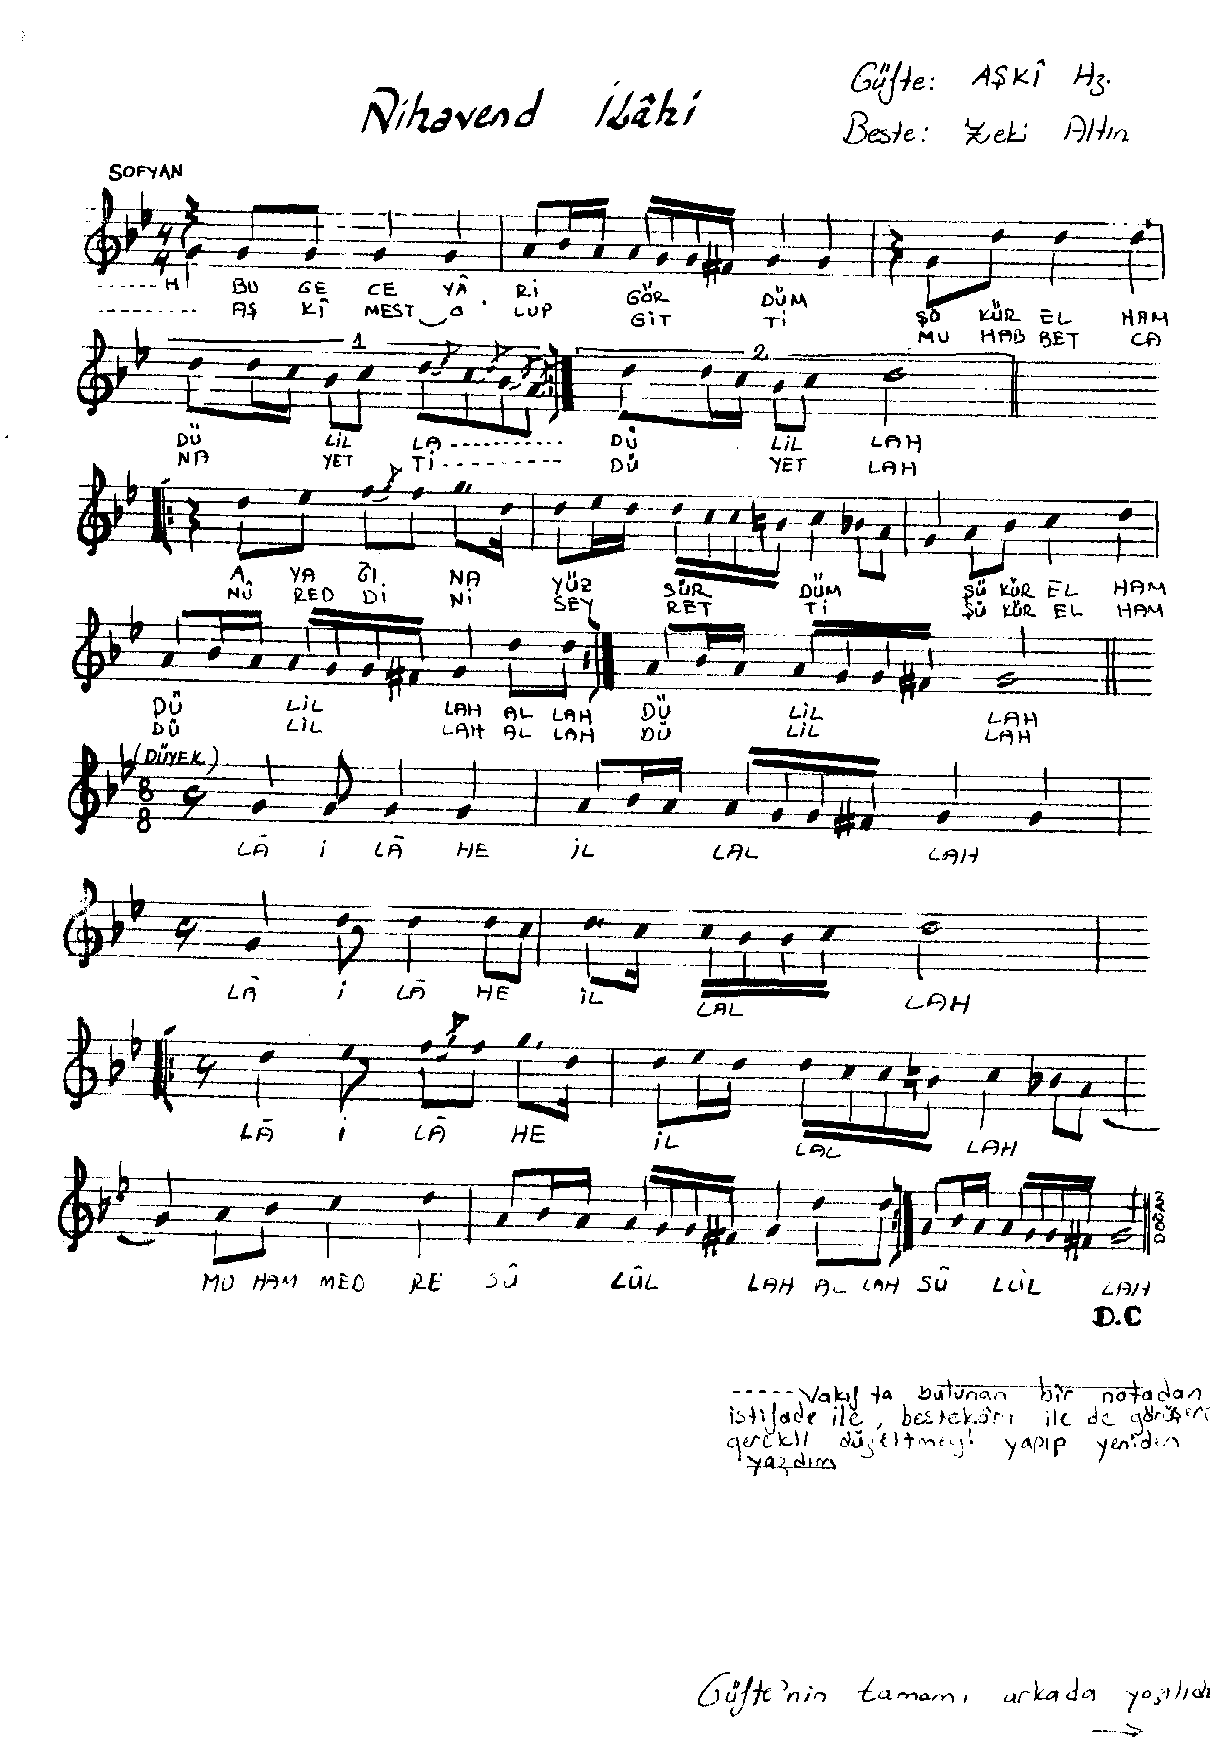 Nihavend İlâhi
Güfte: AŞKÎ Hz.
Beste: Zeki Altın
SOFYAN
4
4
------ H BU GE CE YÂ Rİ GÖR DÜM ŞÜ KÜR EL HAM
---------- AŞ KÎ MEST O LUP GİT Tİ MU HAB BET CA
1 2
DÜ LİL LA---------- DÜ LİL LAH
NA YET Tİ---------- DÜ YET LAH
A YA ĞI NA YÜZ SÜR DÜM ŞÜ KÜR EL HAM
NÛ RED DI NI SEY RET TI ŞÜ KÜR EL HAM
DÜ LİL LAH AL LAH DÜ LİL LAH
DÜ LİL LAH AL LAH DÜ LİL LAH
(DÜYEK)
8
8
LÂ İ LÂ HE İL LAL LAH
LÂ İ LÂ HE İL LAL LAH
LÂ İ LÂ HE İL LAL LAH
MU HAM MED RE SÛ LÛL LAH AL LAH SÛ LÜL LAH
DOĞAN
D.C
-----Vakıf ta bulunan bir notadan
istifade ile, bestekârı ile de görüşerek
gerekli düzeltmeyi yapıp yeniden
yazdım
Güfte'nin tamamı arkada yazılıdır
→